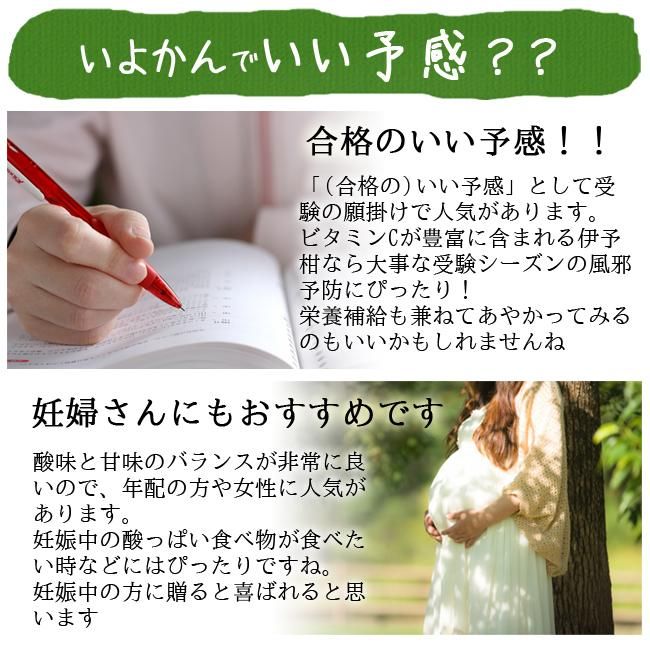 いよかんでいい予感??
合格のいい予感!!
「(合格の)いい予感」として受
験の願掛けで人気があります。
ビタミンCが豊富に含まれる伊予
柑なら大事な受験シーズンの風邪
予防にぴったり!
栄養補給も兼ねてあやかってみる
のもいいかもしれませんね
妊婦さんにもおすすめです
酸味と甘味のバランスが非常に良
いので、年配の方や女性に人気が
あります。
妊娠中の酸っぱい食べ物が食べた
い時などにはぴったりですね。
妊娠中の方に贈ると喜ばれると思
います